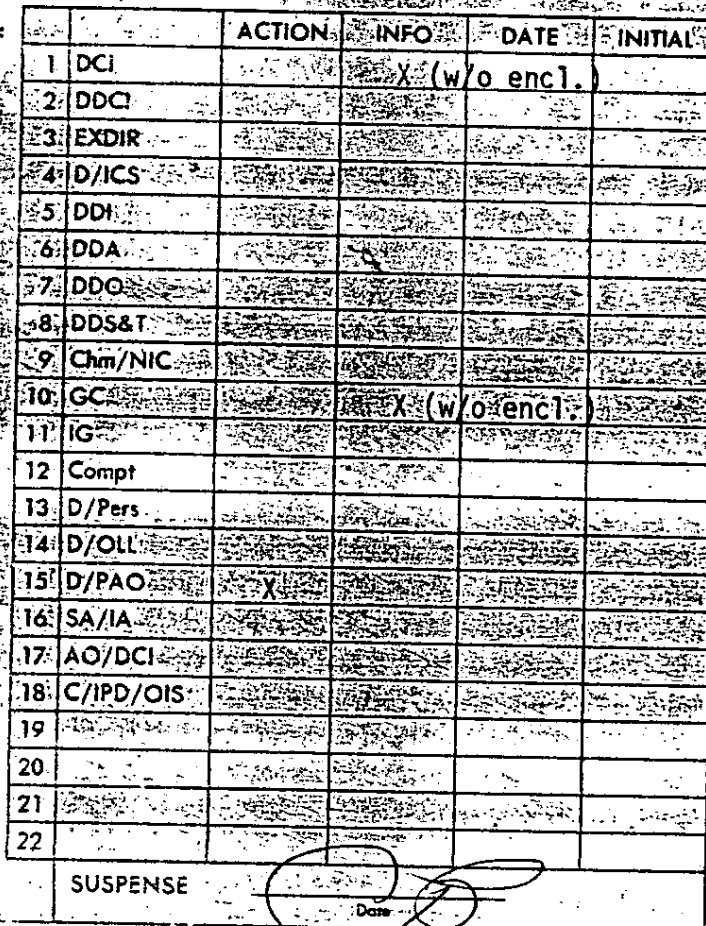 ACTION INFO DATE INITIAL
1 DCI X (w/o encl.)
2 DDCI
3 EXDIR
4 D/ICS
5 DDI
6 DDA
7 DDO
8 DDS&T
9 Chm/NIC
10 GC X (w/o encl.)
11 IG
12 Compt
13 D/Pers
14 D/OLL
15 D/PAO X
16 SA/IA
17 AO/DCI
18 C/IPD/OIS
19
20
21
22
SUSPENSE
Date